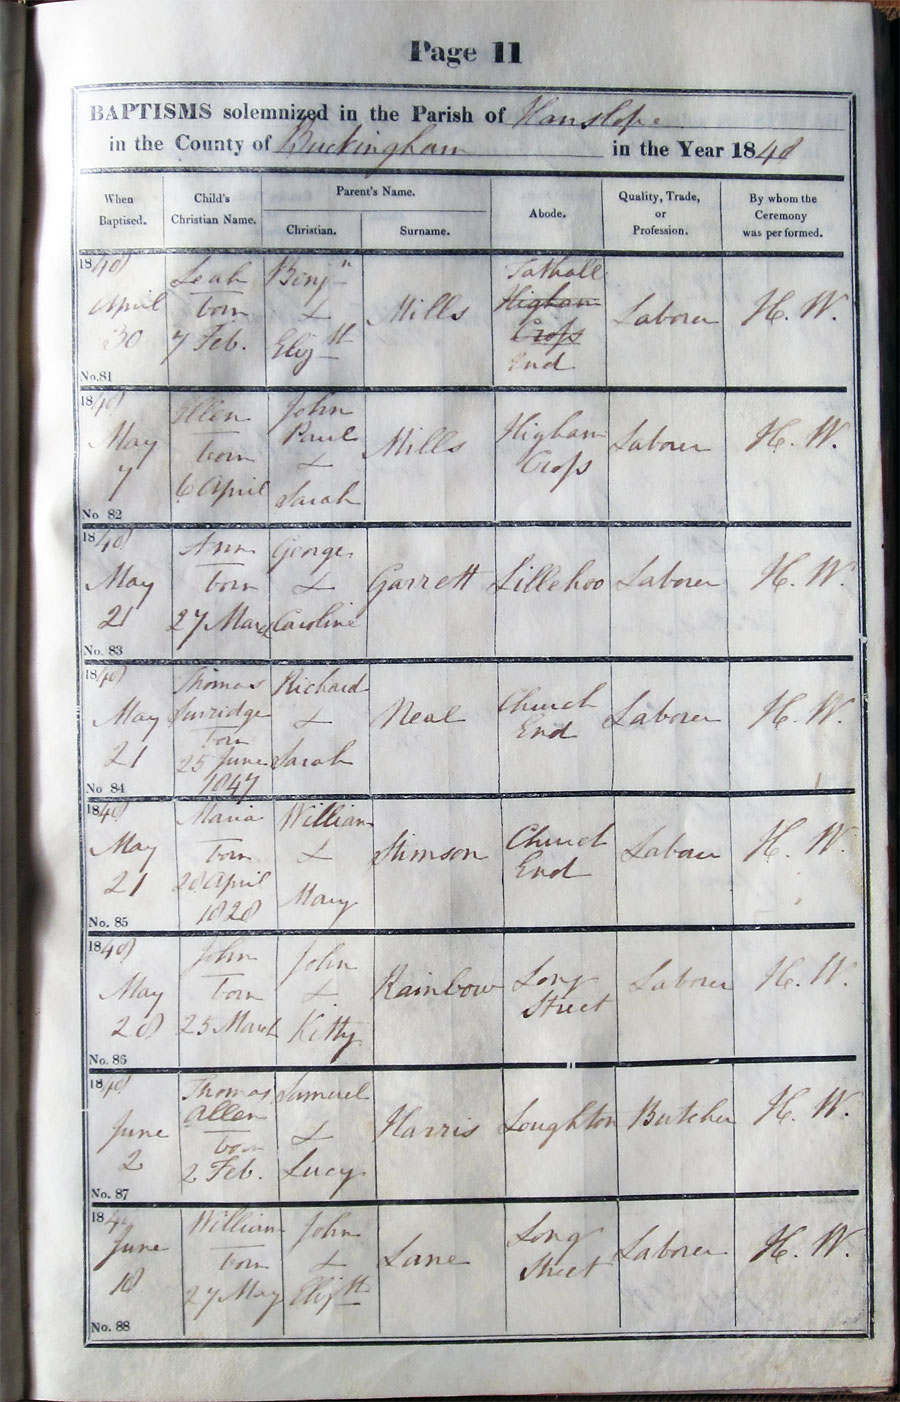 Page 11
BAPTISMS solemnized in the Parish of Hanslope
in the County of Buckingham in the Year 1848
When Baptised.
Child's Christian Name.
Parent's Name.
Christian.
Surname.
Abode.
Quality, Trade, or Profession.
By whom the Ceremony was performed.
1848
April
30
No. 81
Leah
born
7 Feb.
Benjn
&
Elizth
Mills
Tathall
Higham
Crofs
End
Laborer
H. W.
1848
May
7
No 82
Ellen
born
6 April
John
Paul
&
Sarah
Mills
Higham
Crofs
Laborer
H. W.
1848
May
21
No. 83
Ann
born
27 Mar
George
&
Caroline
Garrett
Lillehoo
Laborer
H. W.
1848
May
21
No 84
Thomas
Surridge
born
25 June
1847
Richard
&
Sarah
Neal
Church
End
Laborer
H. W.
1848
May
21
No. 85
Maria
born
28 April
1828
William
&
Mary
Stimson
Church
End
Laborer
H. W.
1848
May
28
No. 86
John
born
25 March
John
&
Kitty
Rainbow
Long
Street
Laborer
H. W.
1848
June
2
No. 87
Thomas
Allen
born
2 Feb.
Samuel
&
Lucy
Harris
Loughton
Butcher
H. W.
1848
June
18
No. 88
William
born
27 May
John
&
Elizth
Lane
Long
Street
Laborer
H. W.